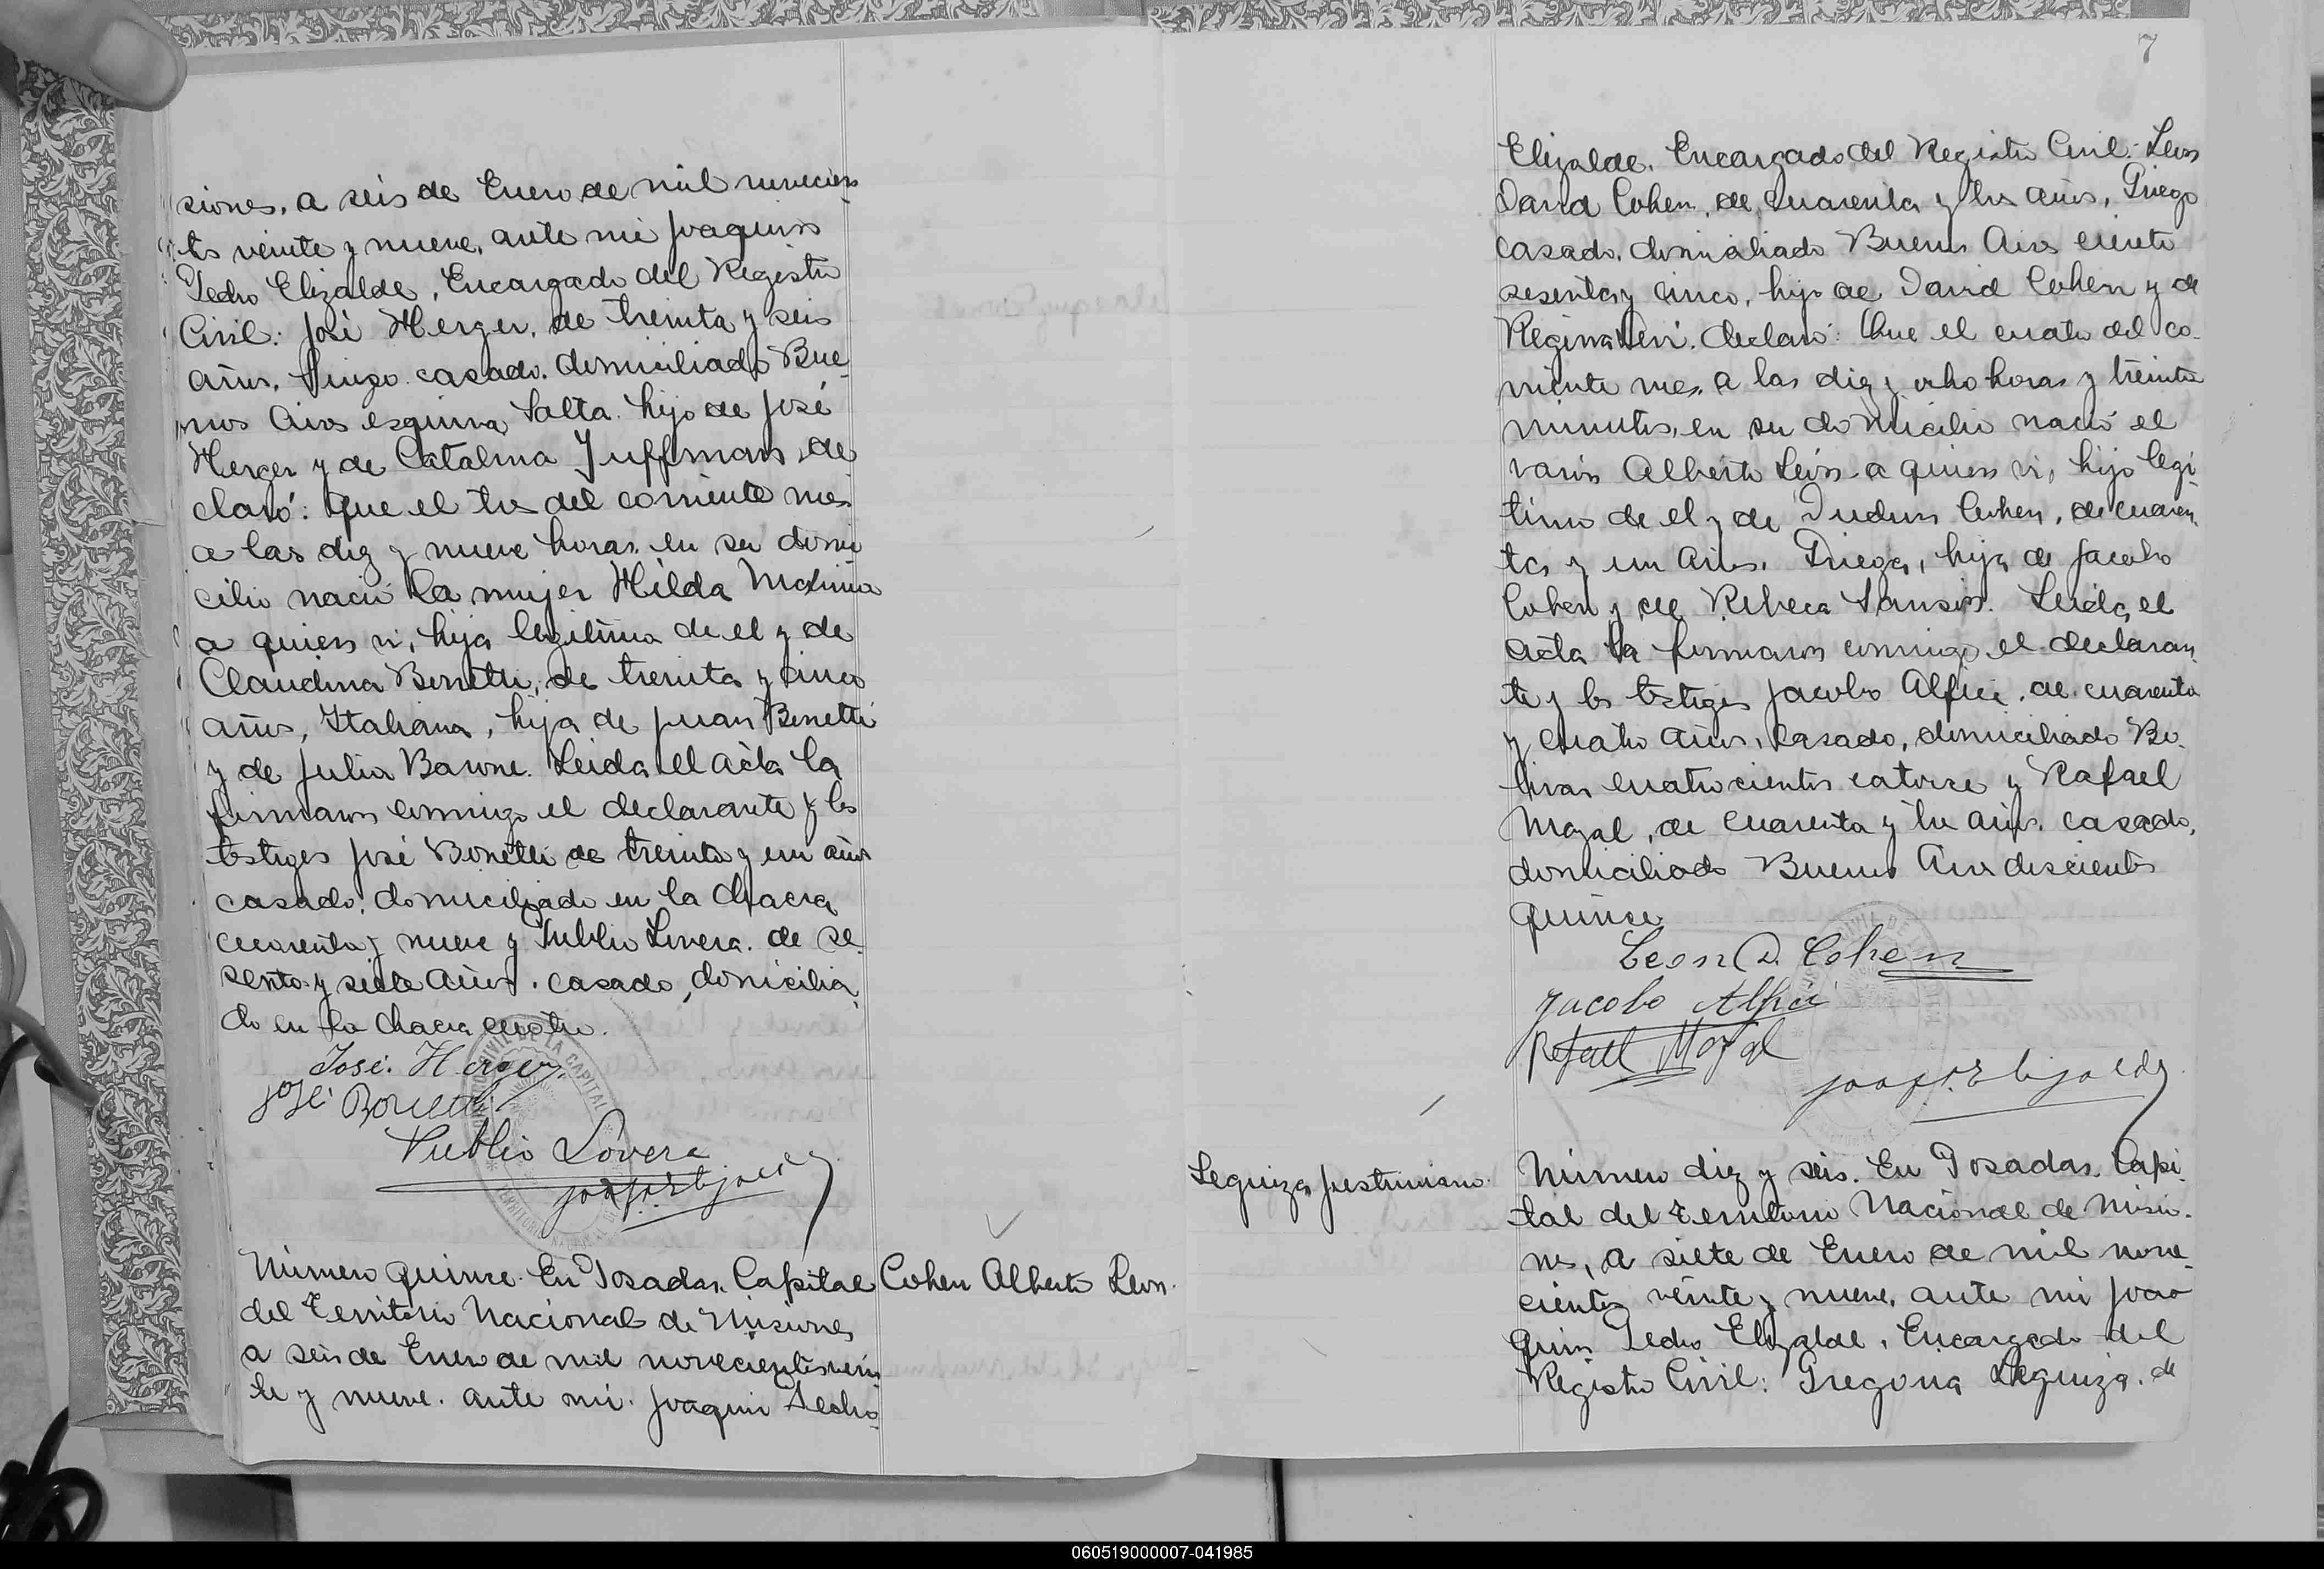 siones, a seis de Enero de mil novecien
tos veinte y nueve, ante mi Joaquin
Pedro Elizalde, Encargado del Registro
Civil: José Herger, de treinta y seis
años, Suizo. casado. domiciliado Bue
nos Aires esquina Salta. hijo de José
Herger y de Catalina Juffman, de
claró: Que el tres del corriente mes
a las diez y nueve horas. en su domi
cilio nació la mujer Hilda Maxima
a quien vi, hija legitima de el y de
Claudina Bonetti, de treinta y cinco
años, Italiana, hija de Juan Bonetti
y de Julia Barone. Leida el acta la
firmaron conmigo el declarante y los
testigos José Bonetti de treinta y un años
casado, domiciliado en la Chacra
cuarenta y nueve y Publio Lovera. de se
senta y siete años. casado, domicilia
do en la chacra cuatro.
José. Herger.
José Bonetti
Publio Lovera
Número quince. En Posadas, Capital
del Territorio Nacional de Misiones
a seis de Enero de mil novecientos vein
te y nueve. ante mi. Joaquin Pedro
Cohen Alberto Leon.
7
Elizalde. Encargado del Registro Civil: Leon
David Cohen, de cuarenta y tres años, Griego
casado, domiciliado Buenos Aires ciento
sesenta y cinco, hijo de David Cohen y de
Regina Levi. declaró: Que el cuatro del co
rriente mes. a las diez y ocho horas y treinta
minutos, en su domicilio nació el
varon Alberto León a quien vi, hijo legi
timo de el y de Cohen, de cuaren
ta y un años. Griega, hija de Jacobo
Cohen y de Rebeca Sansin. Leida el
acta la firmaron conmigo el declaran
te y los testigos Jacobo Alfici, de cuarenta
y cuatro años, casado, domiciliado Bo
livar cuatrocientos catorce y Rafael
Mazal, de cuarenta y tres años. casado,
domiciliado Buenos Aires doscientos
quince
Leon D. Cohen
Jacobo Alfici
Rafael Mazal
Leguiza Justiniano.
Número diez y seis. En Posadas, Capi
tal del Territorio Nacional de Misio
nes, a siete de Enero de mil nove
cientos veinte y nueve, ante mi Joa
quin Pedro Elizalde, Encargado del
Registro Civil: Gregoria Leguiza. de
060519000007-041985